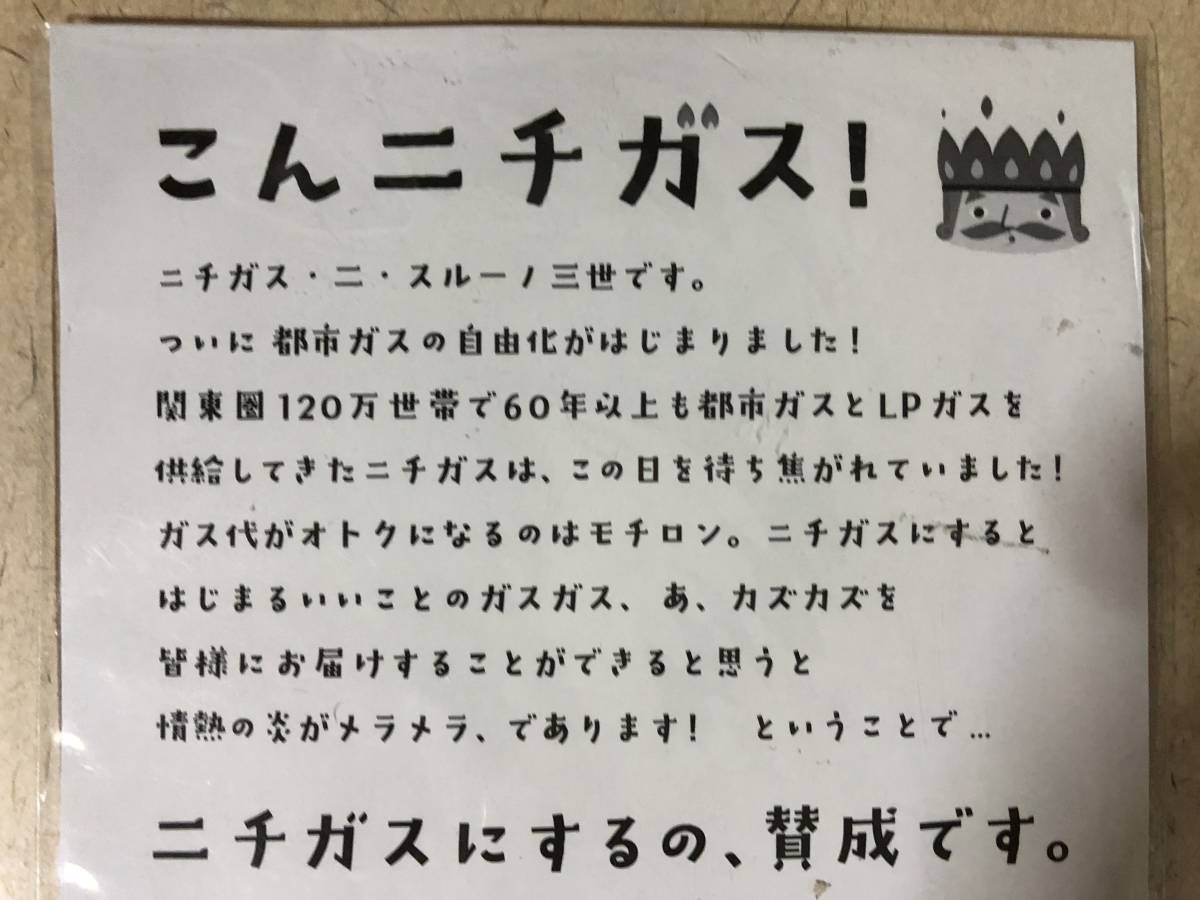 こんニチガス!
ニチガス・ニ・スルーノ三世です。
ついに 都市ガスの自由化がはじまりました!
関東圏120万世帯で60年以上も都市ガスとLPガスを
供給してきたニチガスは、この日を待ち焦がれていました!
ガス代がオトクになるのはモチロン。ニチガスにすると
はじまるいいことのガスガス、あ、カズカズを
皆様にお届けすることができると思うと
情熱の炎がメラメラ、であります! ということで…
ニチガスにするの、賛成です。